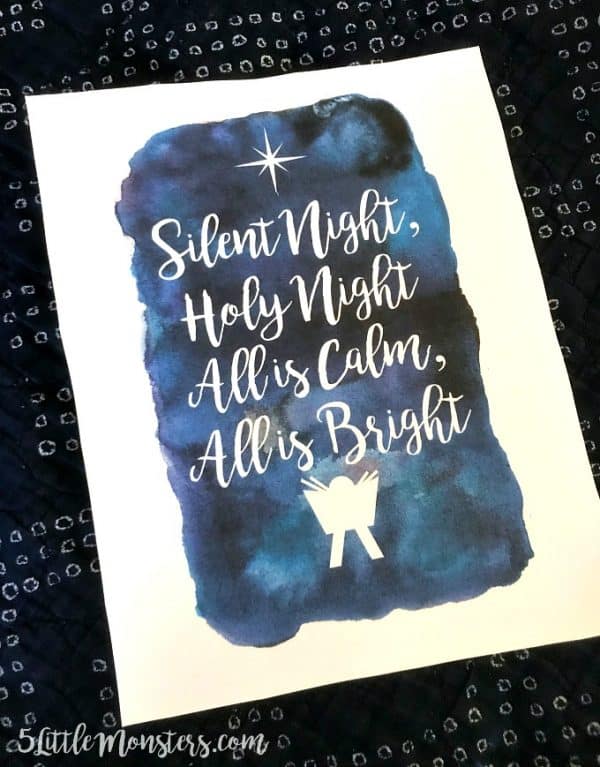 Silent Night,
Holy Night
All is Calm,
All is Bright
5LittleMonsters.com